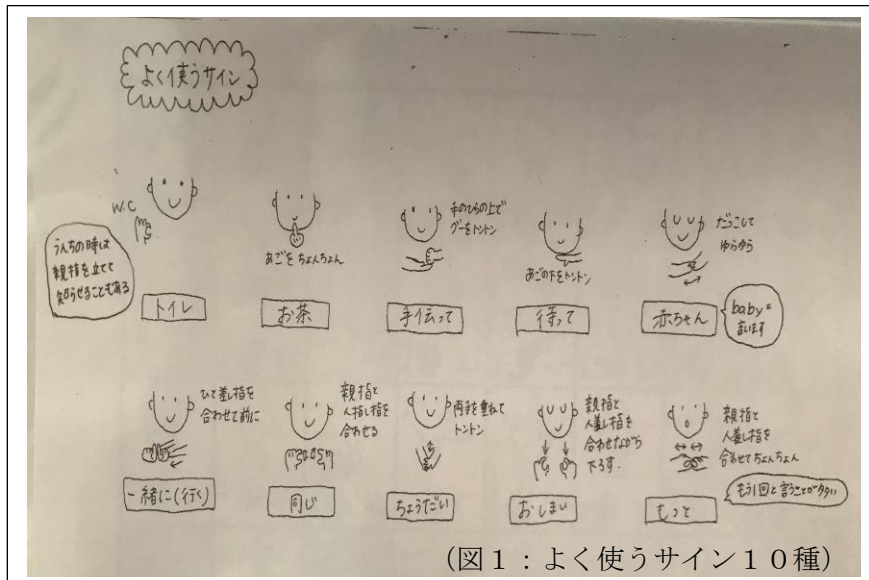 よく使うサイン
W.C
うんちの時は
親指を立てて
知らせることもある
トイレ
あごを ちょんちょん
お茶
手のひらの上で
グーをトントン
手伝って
あごの下をトントン
待って
だっこして
ゆらゆら
赤ちゃん
babyと
言います
ひと差し指を
合わせて前に
一緒に(行く)
親指と
人指し指を
合わせる
同じ
両手を重ねて
トントン
ちょうだい
親指と
人差し指を
合わせながら
下ろす.
おしまい
親指と
人差し指を
合わせてちょんちょん
もっと
もう1回と言うことが多い
(図1:よく使うサイン10種)